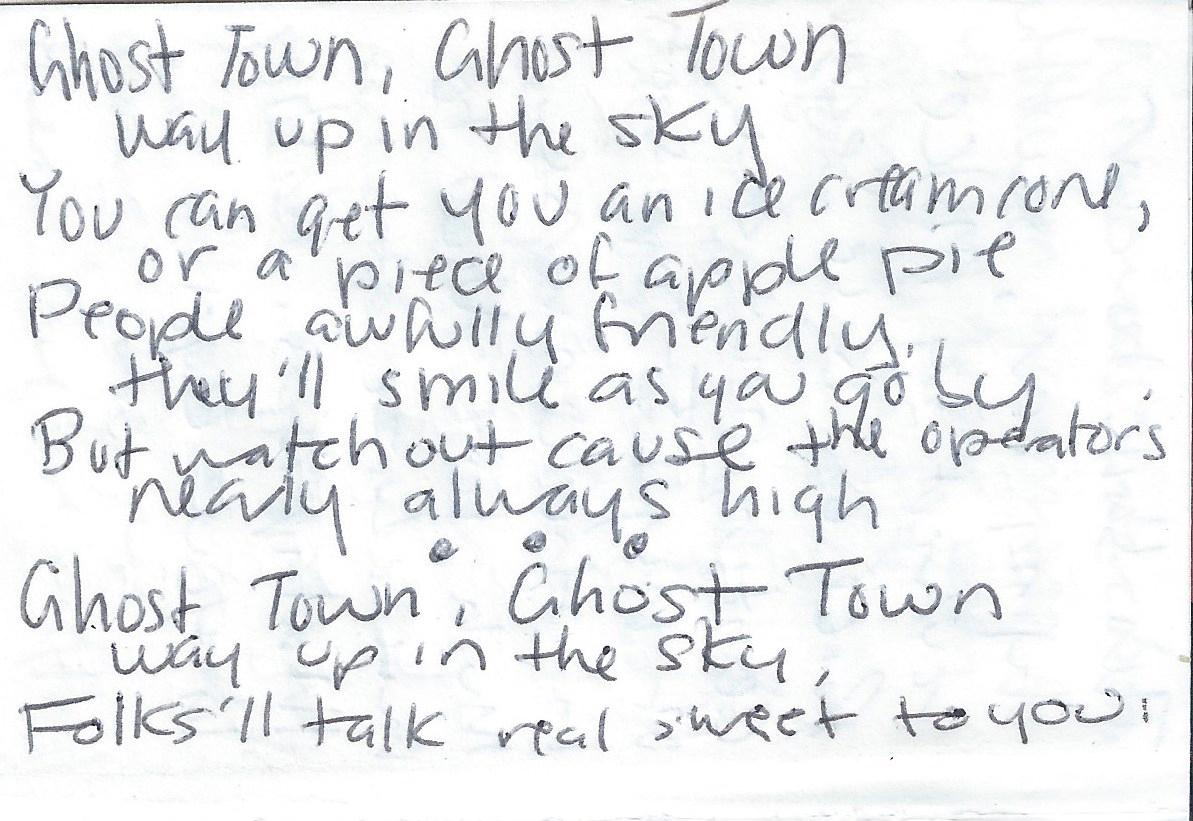 Ghost Town, Ghost Town
way up in the sky
You can get you an ice cream cone,
or a piece of apple pie
People awfully friendly,
they'll smile as ya go by
But watch out cause the operators
nearly always high
• • •
Ghost Town, Ghost Town
way up in the sky,
Folks'll talk real sweet to you: